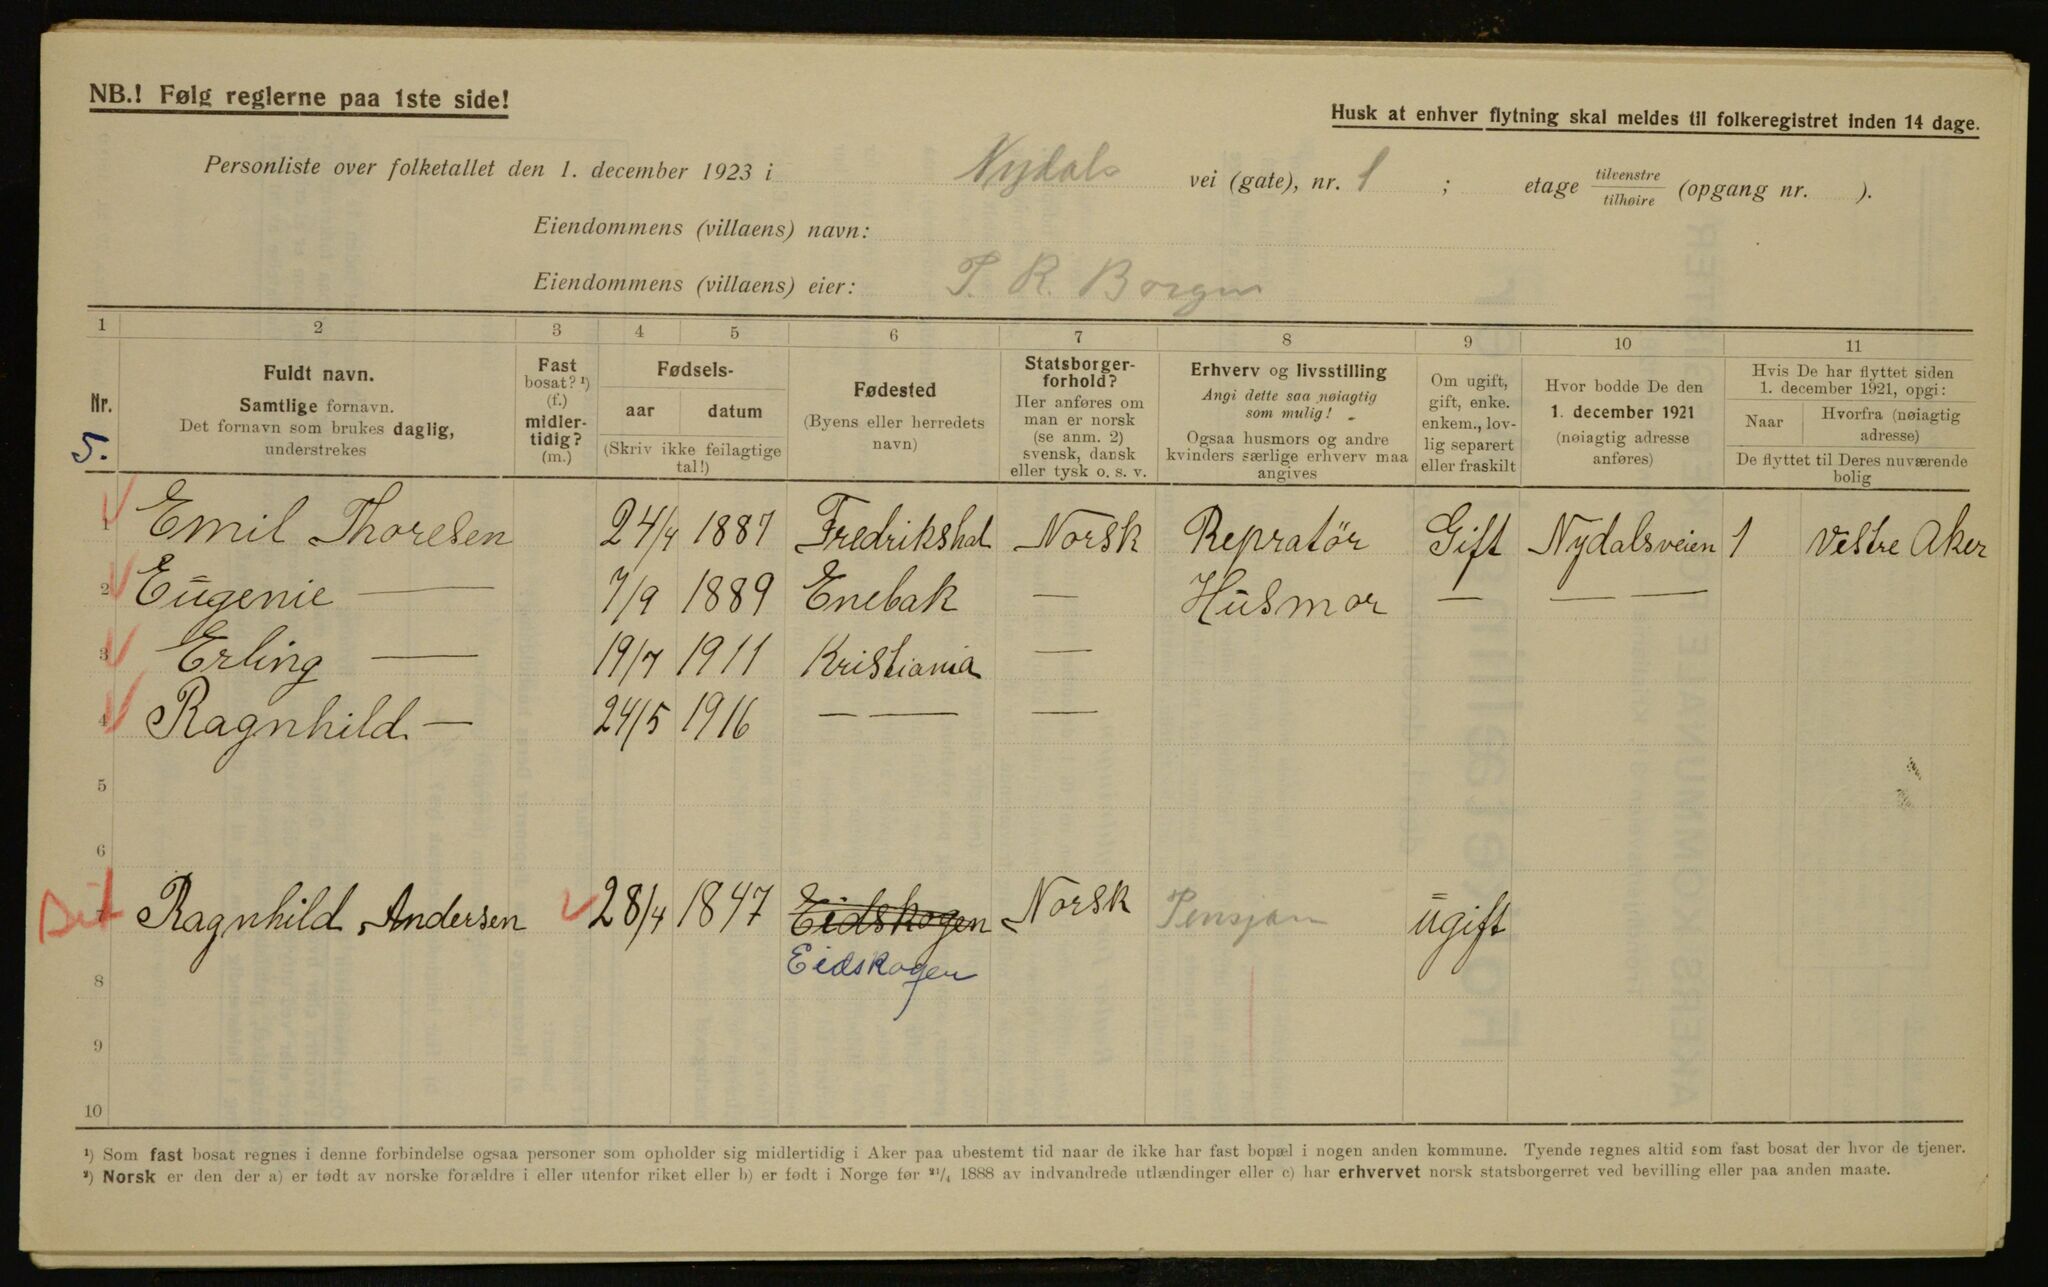 NB.! Følg reglerne paa 1ste side!
Husk at enhver flytning skal meldes til folkeregistret inden 14 dage.
Personliste over folketallet den 1. december 1923 i Nydals vei (gate), nr. 1 ; etage tilvenstre/tilhøire (opgang nr. ).
Eiendommens (villaens) navn:
Eiendommens (villaens) eier: T. R. Borgen
1 2 3 4 5 6 7 8 9 10 11
Nr.
5.
Fuldt navn.
Samtlige fornavn.
Det fornavn som brukes daglig,
understrekes
Fast
bosat? ¹)
(f.)
midler-
tidig?
(m.)
Fødsels-
aar datum
(Skriv ikke feilagtige
tal!)
Fødested
(Byens eller herredets
navn)
Statsborger-
forhold?
Her anføres om
man er norsk
(se anm. 2)
svensk, dansk
eller tysk o. s. v.
Erhverv og livsstilling
Angi dette saa nøiagtig
som mulig!
Ogsaa husmors og andre
kvinders særlige erhverv maa
angives
Om ugift,
gift, enke.
enkem., lov-
lig separert
eller fraskilt
Hvor bodde De den
1. december 1921
(nøiagtig adresse
anføres)
Hvis De har flyttet siden
1. december 1921, opgi:
Naar Hvorfra (nøiagtig
adresse)
De flyttet til Deres nuværende
bolig
1 Emil Thoresen 24/4 1887 Fredrikshal Norsk Repratør Gift Nydalsveien 1 Vestre Aker
2 Eugenie — 7/9 1889 Enebak — Husmor — — —
3 Erling — 19/7 1911 Kristiania —
4 Ragnhild — 24/5 1916 — — —
5
6
Ragnhild Andersen 28/4 1847 Eidskogen Norsk Pensjon ugift
Eidskogen
8
9
10
¹) Som fast bosat regnes i denne forbindelse ogsaa personer som opholder sig midlertidig i Aker paa ubestemt tid naar de ikke har fast bopæl i nogen anden kommune. Tyende regnes altid som fast bosat der hvor de tjener.
²) Norsk er den der a) er født av norske forældre i eller utenfor riket eller b) er født i Norge før 21/4 1888 av indvandrede utlændinger eller c) har erhvervet norsk statsborgerret ved bevilling eller paa anden maate.